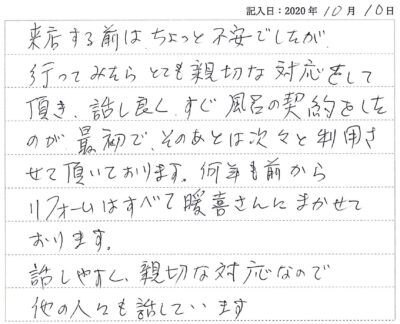 記入日：2020年10月10日
来店する前は、ちょっと不安でしたが
行ってみたら とても親切な対応をして
頂き、話し良く、すぐ風呂の契約をした
のが最初で、そのあとは次々と利用さ
せて頂いております。何年も前から
リフォームはすべて暖喜さんにまかせて
おります。
話しやすく、親切な対応なので
他の人々も話しています